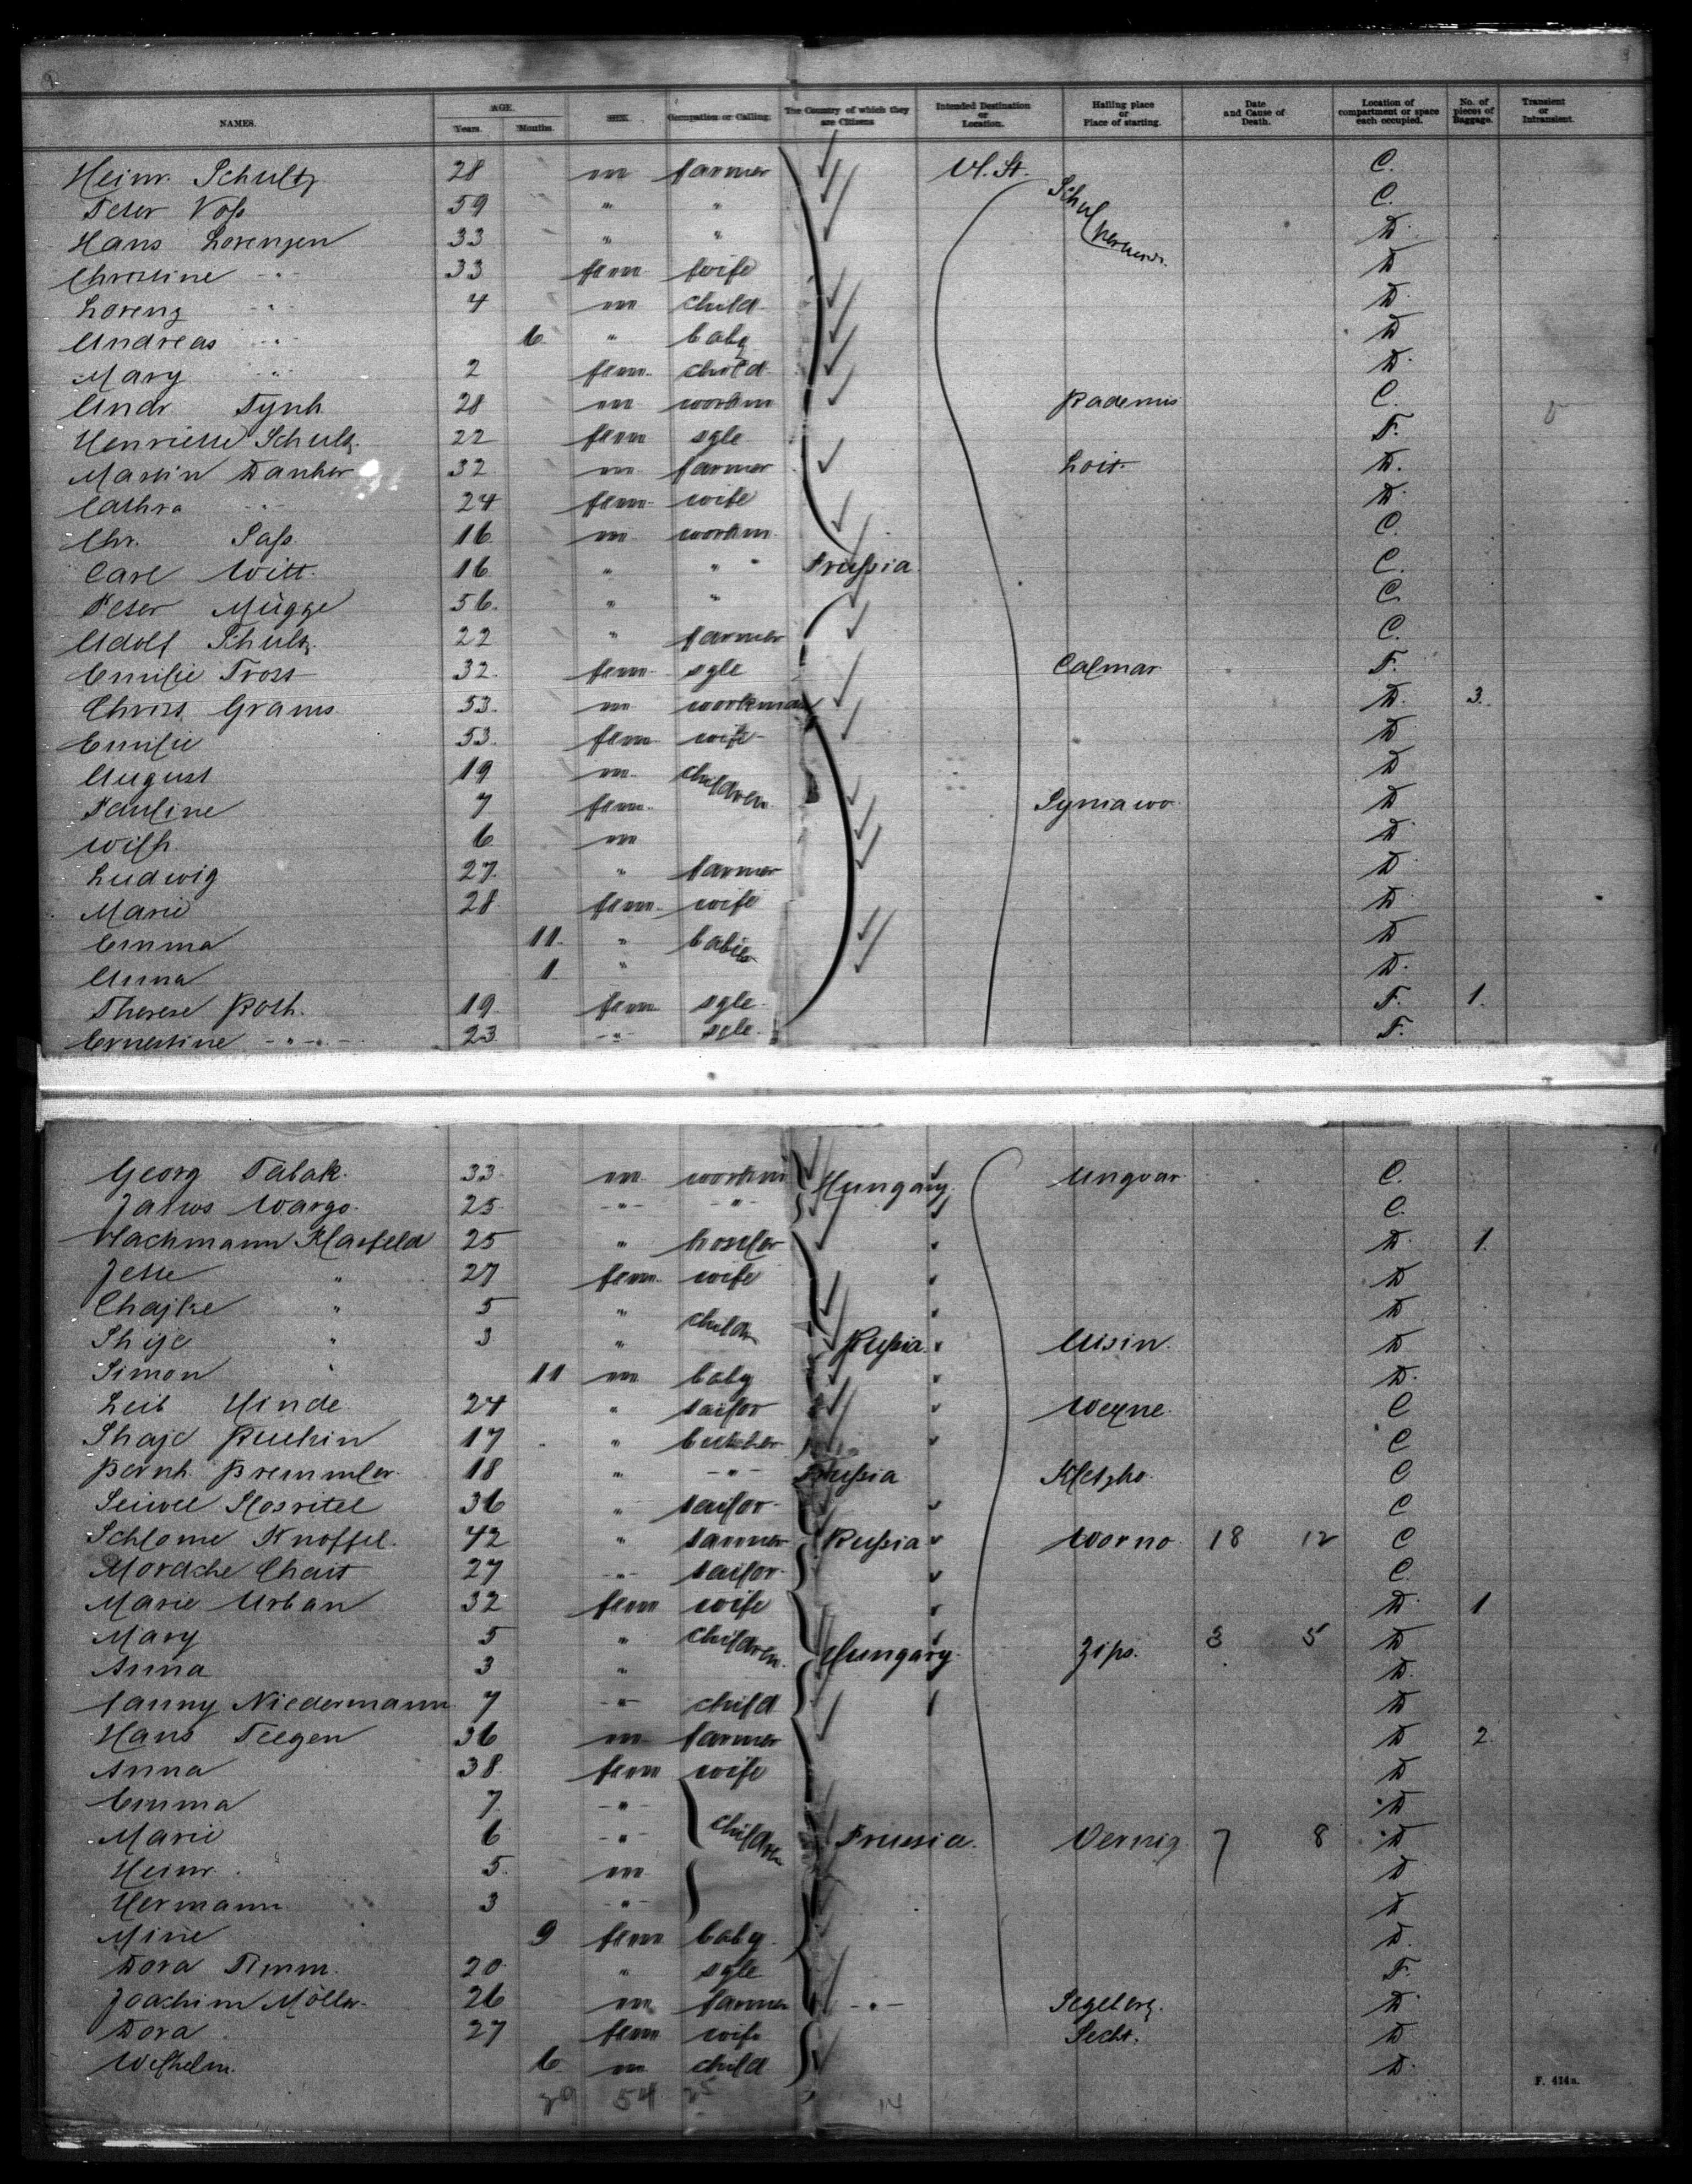 NAMES. AGE. Years. Months. SEX. Occupation or Calling. The Country of which they are Citizens Intended Destination or Location. Hailing place or Place of starting. Date and Cause of Death. Location of compartment or space each occupied. No. of pieces of Baggage. Transient or Intransient.
Heinr. Schultz 28 m farmer U. St. C.
Peter Voß 59 " " C.
Hans Lorenzen 33 " " D.
Christine " 33 fem wife D
Lorenz " 4 m child D.
Andreas " 6 " baby D
Mary " 2 fem. child D.
Andr Tynh 28 m workm C.
Henriette Schulz. 22 fem sgle F.
Martin Danker 32 m farmer Loit D.
Cathra " 24 fem wife D.
Chr. Saß 16 m workm. C.
Carl Witt. 16 " " Prußia C.
Peter Mügge 56. " " C.
Adolf Schulz. 22 " farmer C.
Emilie Tross 32. fem. sgle Calmar F.
Christ. Grams 53. m workman D. 3.
Emilie 53. fem. wife D
August 19 m. children D
Pauline 7 fem. Syniawo D
Wilh 6 m D
Ludwig 27. " farmer D
Marie 28 fem. wife D.
Emma 11. " babies D
Anna 1 " D.
Therese Roth. 19 fem sgle. F. 1.
Ernestine " " 23 " sgle. F.
Georg Tabak. 33 m workm Hungary. Ungvar C.
Wargo. 25 " " C.
25 " hostler D. 1.
Jette " 27 fem. wife D
Chajke " 5 " childr D
" 3 " Rußia. D
Simon " 11 m baby D.
Leib Hinde 24 " tailor C
17 " butcher C
Bernh. Bremmler. 18 " " Kletzko. C
36 " tailor C
Schlome Knoffel. 42 " tanner Rußia Worno 18 12 C
Mordche Chait 27 " tailor C.
Marie Urban 32 fem wife D. 1
Mary 5 " children. Hungary. Zips. 3 5 D
Anna 3 " D.
Fanny Niedermann 7 " child D
Hans Teegen 36 m farmer D 2.
Anna 38. fem wife D
Emma 7 " children D
Marie 6 " Prussia. 7 8 D
Heinr. 5. m D
Hermann 3 " D
Mine 9 fem baby. D.
Dora Timm. 20 " sgle F.
Joachim Möller. 26 m farmer " Segeberg. D
Dora 27 fem wife D
Wilhelm. 6 m child D.
29 54 25 14
F. 414a.